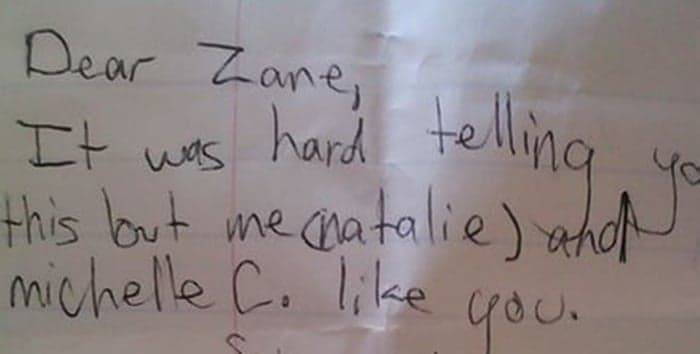 Dear Zane,
It was hard telling yo
this but me (natalie) and
michelle C. like you.